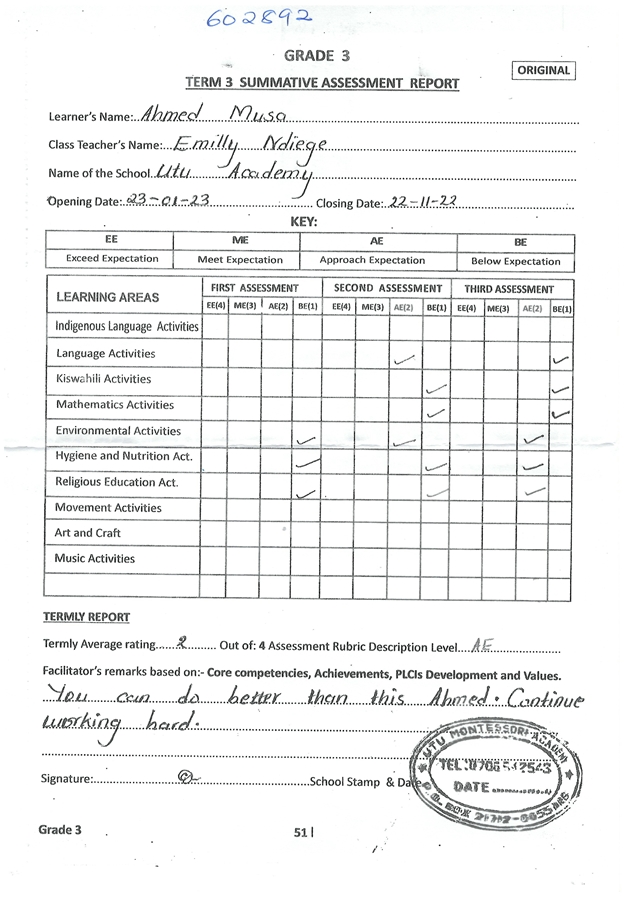 602892
GRADE 3
ORIGINAL
TERM 3 SUMMATIVE ASSESSMENT REPORT
Learner's Name: Ahmed Musa
Class Teacher's Name: Emilly Ndiege
Name of the School Utu Academy
Opening Date: 23-01-23 Closing Date: 22-11-22
KEY:
EE ME AE BE
Exceed Expectation Meet Expectation Approach Expectation Below Expectation
LEARNING AREAS FIRST ASSESSMENT SECOND ASSESSMENT THIRD ASSESSMENT
EE(4) ME(3) AE(2) BE(1) EE(4) ME(3) AE(2) BE(1) EE(4) ME(3) AE(2) BE(1)
Indigenous Language Activities
Language Activities ✓ ✓
Kiswahili Activities ✓ ✓
Mathematics Activities ✓ ✓
Environmental Activities ✓ ✓ ✓
Hygiene and Nutrition Act. ✓ ✓ ✓
Religious Education Act. ✓ ✓ ✓
Movement Activities
Art and Craft
Music Activities
TERMLY REPORT
Termly Average rating 2 Out of: 4 Assessment Rubric Description Level AE
Facilitator's remarks based on:- Core competencies, Achievements, PLCIs Development and Values.
You can do better than this Ahmed. Continue
working hard.
Signature: School Stamp & Date
UTU MONTESSORI ACADEMY
TEL:0706 542543
DATE
Grade 3 51